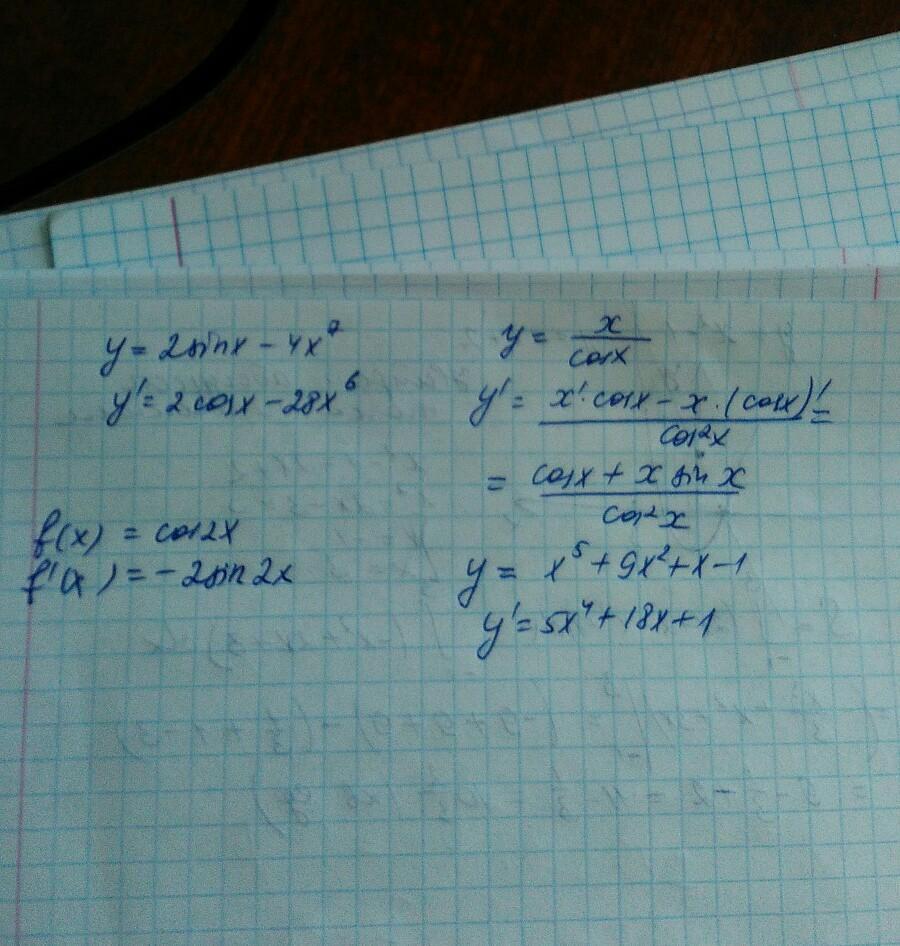 y = 2sinx - 4x⁷
y' = 2cosx - 28x⁶
f(x) = cos2x
f'(x) = -2sin2x
y = x/cosx
y' = (x'·cosx - x·(cosx)')/cos²x =
= (cosx + x sin x)/cos²x
y = x⁵ + 9x² + x - 1
y' = 5x⁴ + 18x + 1